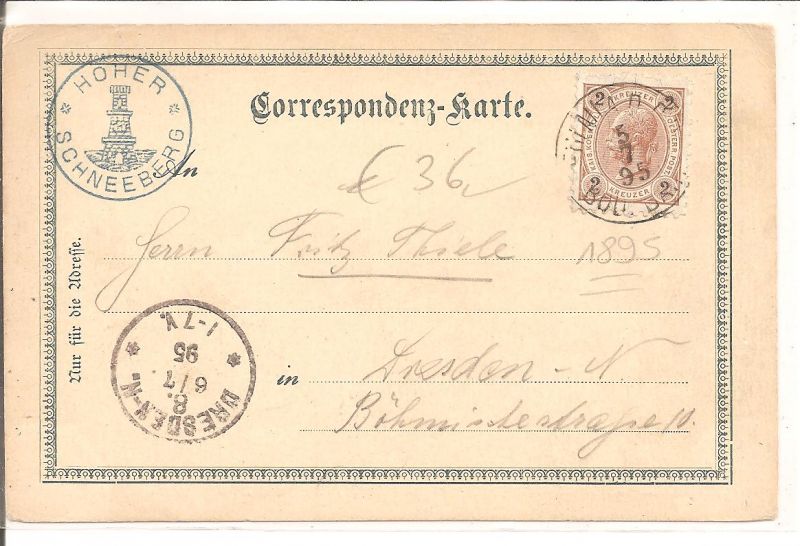 HOHER
SCHNEEBERG
Correspondenz-Karte.
2 KREUZER 2
2 KREUZER 2
5
7
95
An
€ 36,
Herrn Fritz Thiele
1895
Nur für die Adresse.
DRESDEN-N-
8.
6/7
95
1-7 V.
in Dresden-N
Böhmischestraße 10.